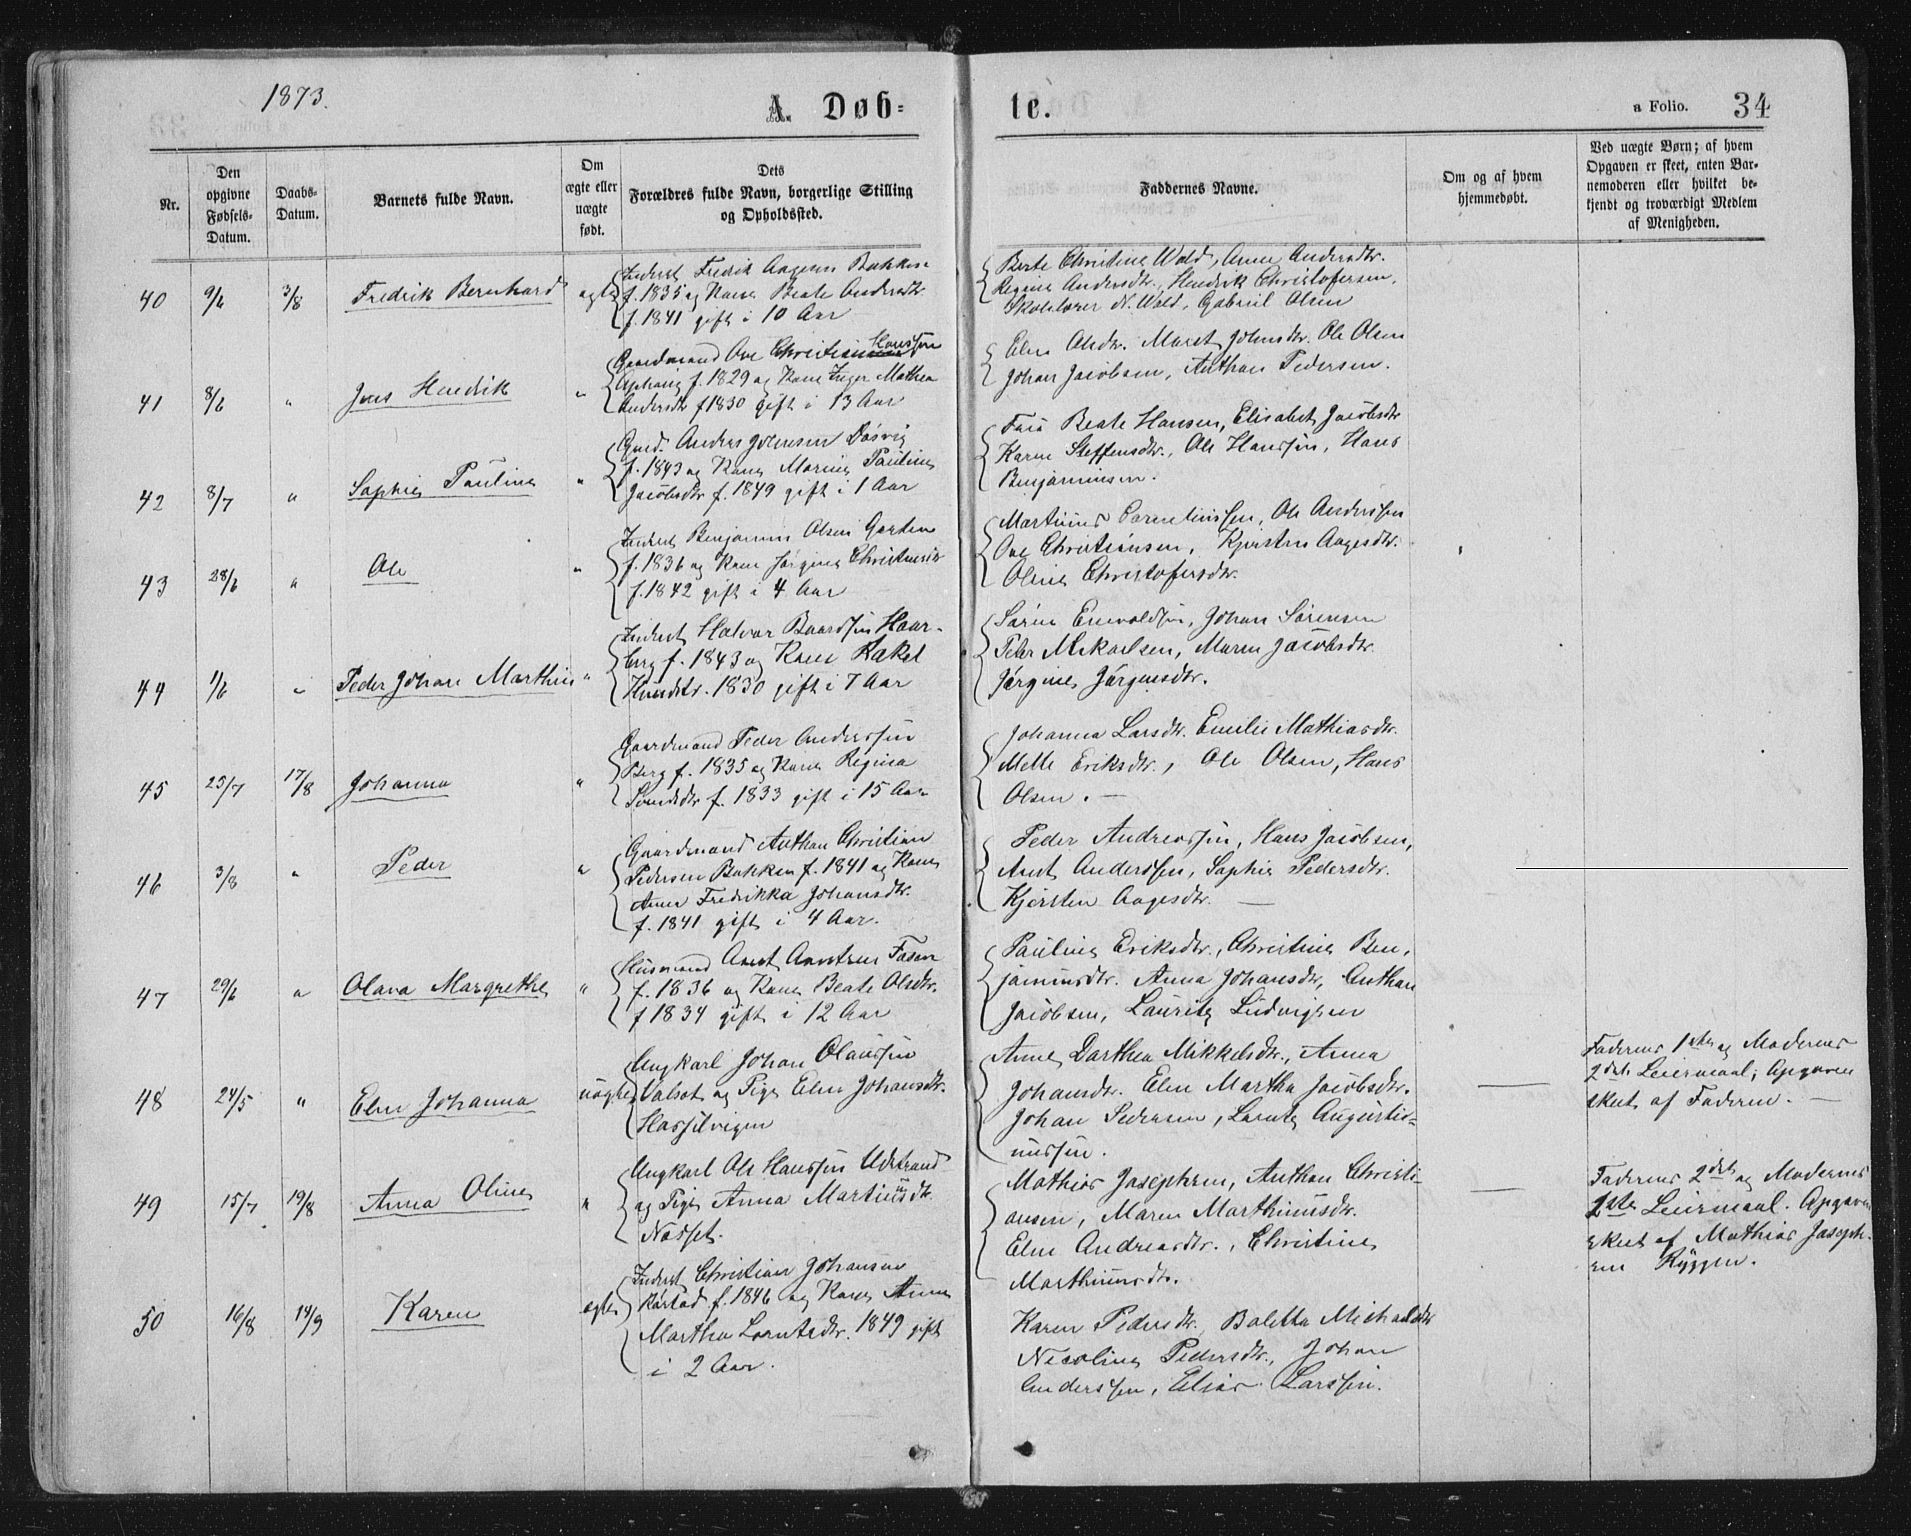 1873.
A. Døb-
te.
a Folio. 34
Nr.
Den opgivne Fødsels-Datum.
Daabs-Datum.
Barnets fulde Navn.
Om ægte eller uægte født.
Dets Forældres fulde Navn, borgerlige Stilling og Opholdssted.
Faddernes Navne.
Om og af hvem hjemmedøbt.
Ved uægte Børn; af hvem Opgaven er skeet, enten Barnemoderen eller hvilket bekjendt og troværdigt Medlem af Menigheden.
40 9/6 3/8 Fredrik Bernhard ægte
Inderst Fredrik Aagesen Bakken
f. 1835 og Kone Beate Andersdtr.
f. 1841 gift i 10 Aar
Berte Christine Wold, Anne Andersdtr.
Regine Andersdtr., Hendrik Christofersen,
Skolelærer N. Wold, Gabriel Olsen
41 8/6 " Jens Hendrik "
Gaardmand Ove Christian Hanssen
f. 1829 og Kone Inger Mathea
Andersdtr f 1830 gift i 13 Aar
Elen Olsdtr. Maret Johnsdtr. Ole Olsen
Johan Jacobsen, Anthon Pedersen.
42 8/7 " Sophie Pauline "
Gmd. Anders Jensen Døsvig
f. 1843 og Kone Marine Pauline
Jacobsdtr f. 1849 gift i 1 Aar
Beate Hansen, Elisabet Jacobsdtr
Karen Steffensdtr., Ole Hanssen, Hans
Benjaminsen.
43 28/6 " Ole "
Inderst Benjamin Olsen Garten
f. 1836 og Kone Jørgine
f. 1842 gift i 4 Aar
Martinus Cornelius̈sen, Ole Anderssen
Ove Christiansen, Kjersten Aagesdtr.
Oline Christofersdtr.
44 1/6 " Peder Johan Marthin "
Inderst Halvor Baardsen Haar-
berg f. 1843 og Kone Rakel
Knudsdtr. 1830 gift i 7 Aar
Søren Enevoldsen, Johan Sørensen
Peter Mikaelsen, Maren Jacobsdtr
Jørgine Jørgensdtr.
45 25/7 17/8 Johanna "
Gaardmand Peder Anderssen
Berg f. 1835 og Kone Regina
f. 1833 gift i 15 Aar
Johanna Larsdtr. Emilie Mathiasdtr.
Mette Eriksdtr., Ole Olsen, Hans
Olsen. —
46 3/8 " Peder "
Gaardmand Anthon Christian
Pedersen Bakken f. 1841 og Kone
Anna Fredrikka Johansdtr.
f. 1841 gift i 4 Aar.
Peder Andreassen, Hans Jacobsen,
Arnt Anderssen, Sophie Pedersdtr.
Kjersten Aagesdtr. —
47 29/6 " Olava Margrethe "
Husmand Arnt Arntsen Fosen
f. 1836 og Kone Beate Olsdtr.
f 1834 gift i 12 Aar
Pauline Eriksdtr., Christine Ben-
jaminsdtr. Anna Johansdtr, Anthon
Jacobsen, Lauritz Ludvigsen
48 24/5 " Elen Johanna uægte
Ungkarl Johan Olaussen
Valsøt og Pige Elen Johansdtr.
Hasselvigen
Anne Dorthea Mikkelsdtr., Anna
Johansdtr. Elen Martha Jacobsdtr.
Johan Pedersen, Lorntz Augusti-
nussen.
—
Faderens 1ste og Moderens
2det Leiermaal; Opgaven
skeet af Faderen. —
49 15/7 19/8 Anna Oline "
Ungkarl Ole Hanssen Udstrand
og Pige Anna Martinusdtr.
Nesset.
Mathias Josephsen, Anthon Christi-
ansen, Maren Marthinusdtr.
Elen Andreasdtr., Christine
Marthinusdtr.
—
Faderens 2det og Moderens
1ste Leiermaal. Opgaven
skeet af Mathias Joseph-
sen Ryggen.
50 16/8 14/9 Karen ægte
Inderst Christian Johansen
Rørstad f. 1846 og Kone Anne
Martha Lorntsdtr. 1849 gift
i 2 Aar.
Karen Pedersdtr, Boletta Michaelsdtr
Nicoline Pedersdtr., Johan
Anderssen, Elias Larssen.